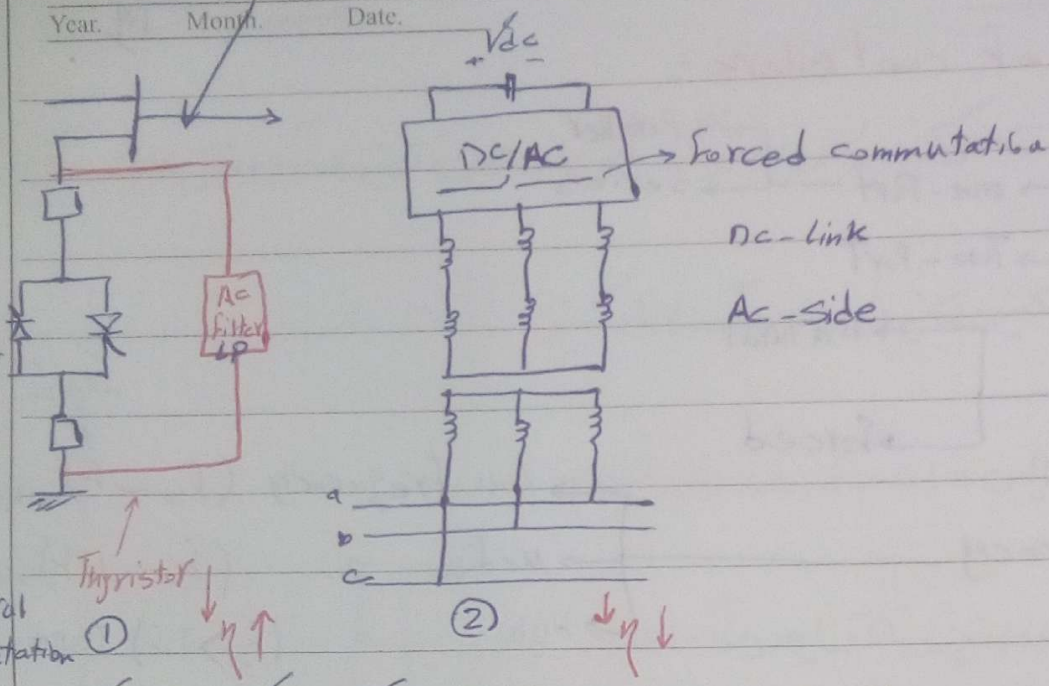 Year. Month. Date.
Vdc
+ -
DC/AC
Forced commutatio
DC-link
AC-side
AC
filter
LP
a
b
c
Thyristor
① η ↑
② η ↓